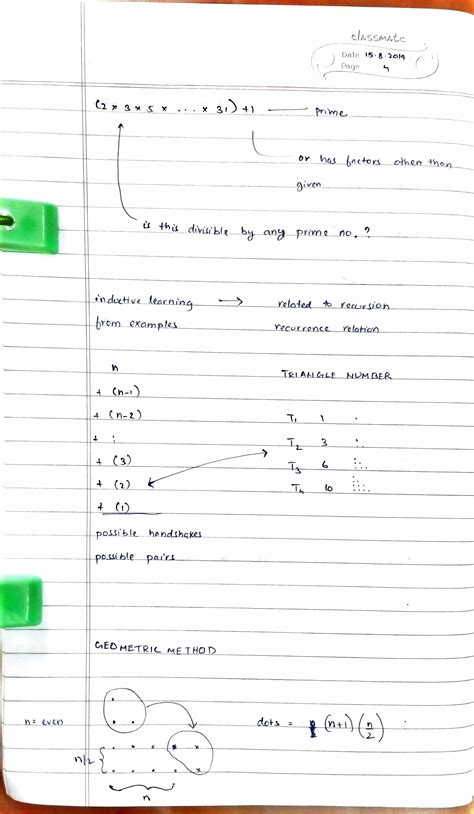 classmate
Date 15.8.2019
Page 4
(2 × 3 × 5 × ... × 31) + 1 — prime
or has factors other than
given
is this divisible by any prime no. ?
inductive learning → related to recursion
from examples recurrence relation
n TRIANGLE NUMBER
+ (n-1)
+ (n-2) T₁ 1
+ ⋮ T₂ 3
+ (3) T₃ 6
+ (2) T₄ 10
+ (1)
possible handshakes
possible pairs
GEOMETRIC METHOD
n = even dots = (n+1) (n/2)
n/2
n